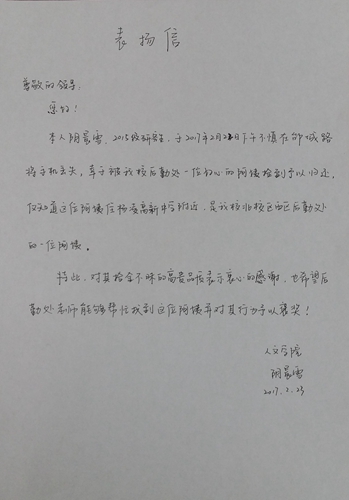 表扬信
尊敬的领导:
您好!
本人阴晨雪,2015级研究生,于2017年2月22日下午不慎在邰城路
将手机丢失,幸于被我校后勤处一位好心的阿姨捡到予以归还,
仅知道这位阿姨住杨凌高新中学附近,是我校北校区西区后勤处
的一位阿姨。
特此,对其拾金不昧的高贵品质表示衷心的感谢,也希望后
勤处老师能够帮忙找到这位阿姨并对其行为予以褒奖!
人文学院
阴晨雪
2017.2.23